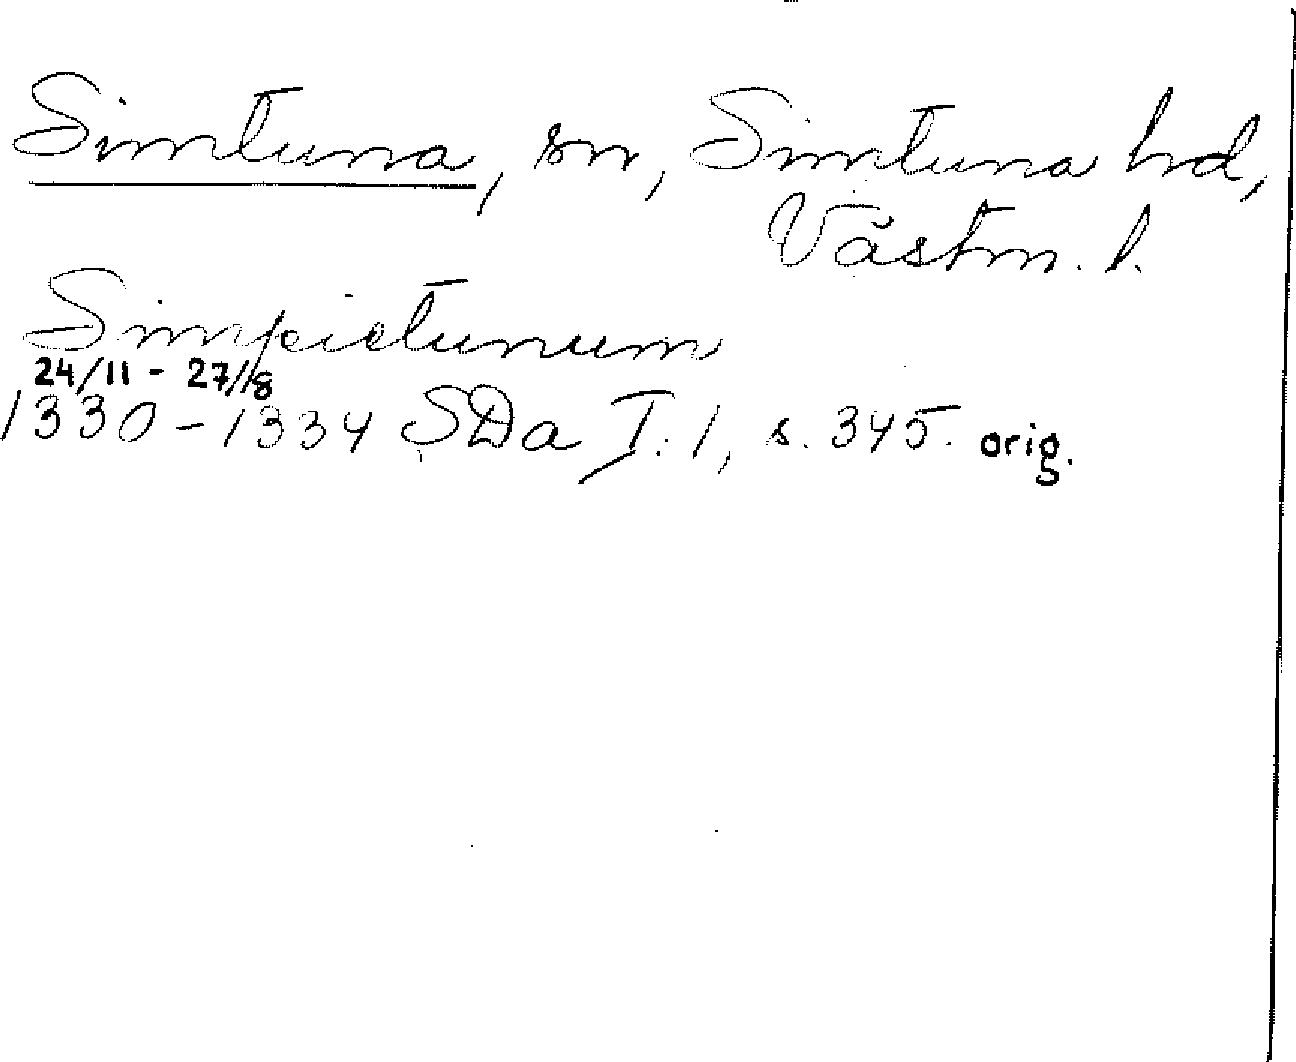 Simtuna, sn, Simtuna hd,
Västm. l.
Simpietunum
24/11 - 27/8
1330-1334 SDa I:1, s. 345. orig.